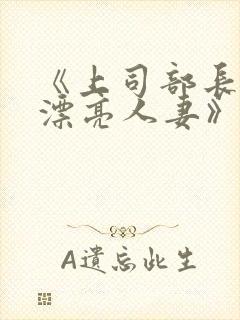 《上司部長
漂亮人妻》
A遺忘此生